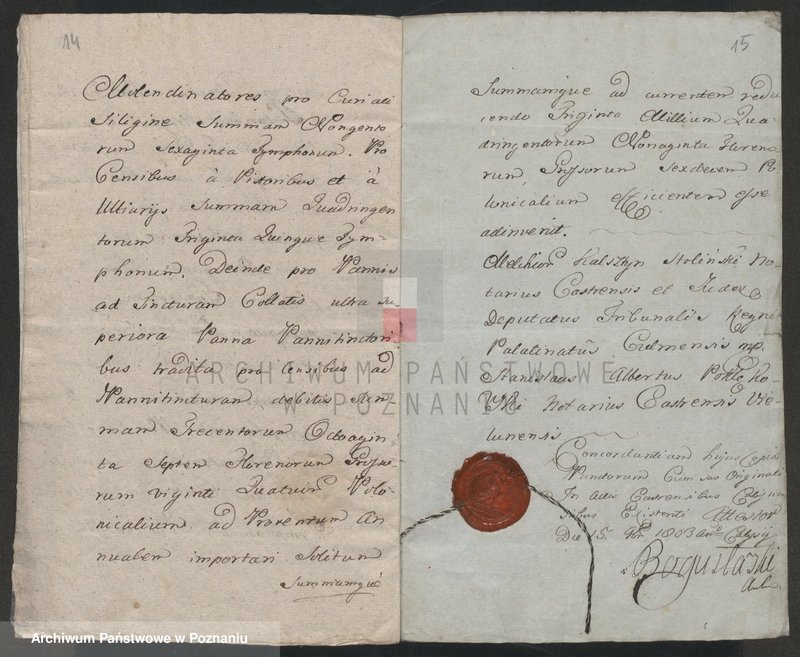 14
Molendinatores pro Curiali
Siligine Summam Nongento
rum Sexaginta Tymphonum. Pro
Censibus à Pistoribus et à
Ultiarijs Summam Quadringen
torum Triginta Quinque Tym=
phonum. Deinde pro Pannis
ad Tincturam Collatis ultra su
periora Panna Pannitinctori
bus tradita pro censibus ad
Pannitincturam debitis Sum
mam Trecentorum Octoagin
ta Septem Florenorum Grosso
rum viginti Quatuor Polo
nicalium ad Proventum An
nualem importari Solitum
Summamque
15
Summamque ad currentem redu
cendo Triginta Millium Qua=
dringentorum Nonaginta Floreno
rum Grossorum Sexdecem Po
lonicalium efficientem esse
adinvenit.
Melchior Kalsztyn Stoliński No=
tarius Castrensis et Judex
Deputatus Tribunalis Regni
Palatinatûs Culmensis mp.
Stanislaus Albertus
Notarius Castrensis Vie
lunensis
Concordantiam hujus Copiæ
Cum suo Originali
In Actis Castrensibus
sibus Existenti Attestor
Die 15. 1803
ARCHIWUM PAŃSTWOWE
W POZNANIU
Archiwum Państwowe w Poznaniu